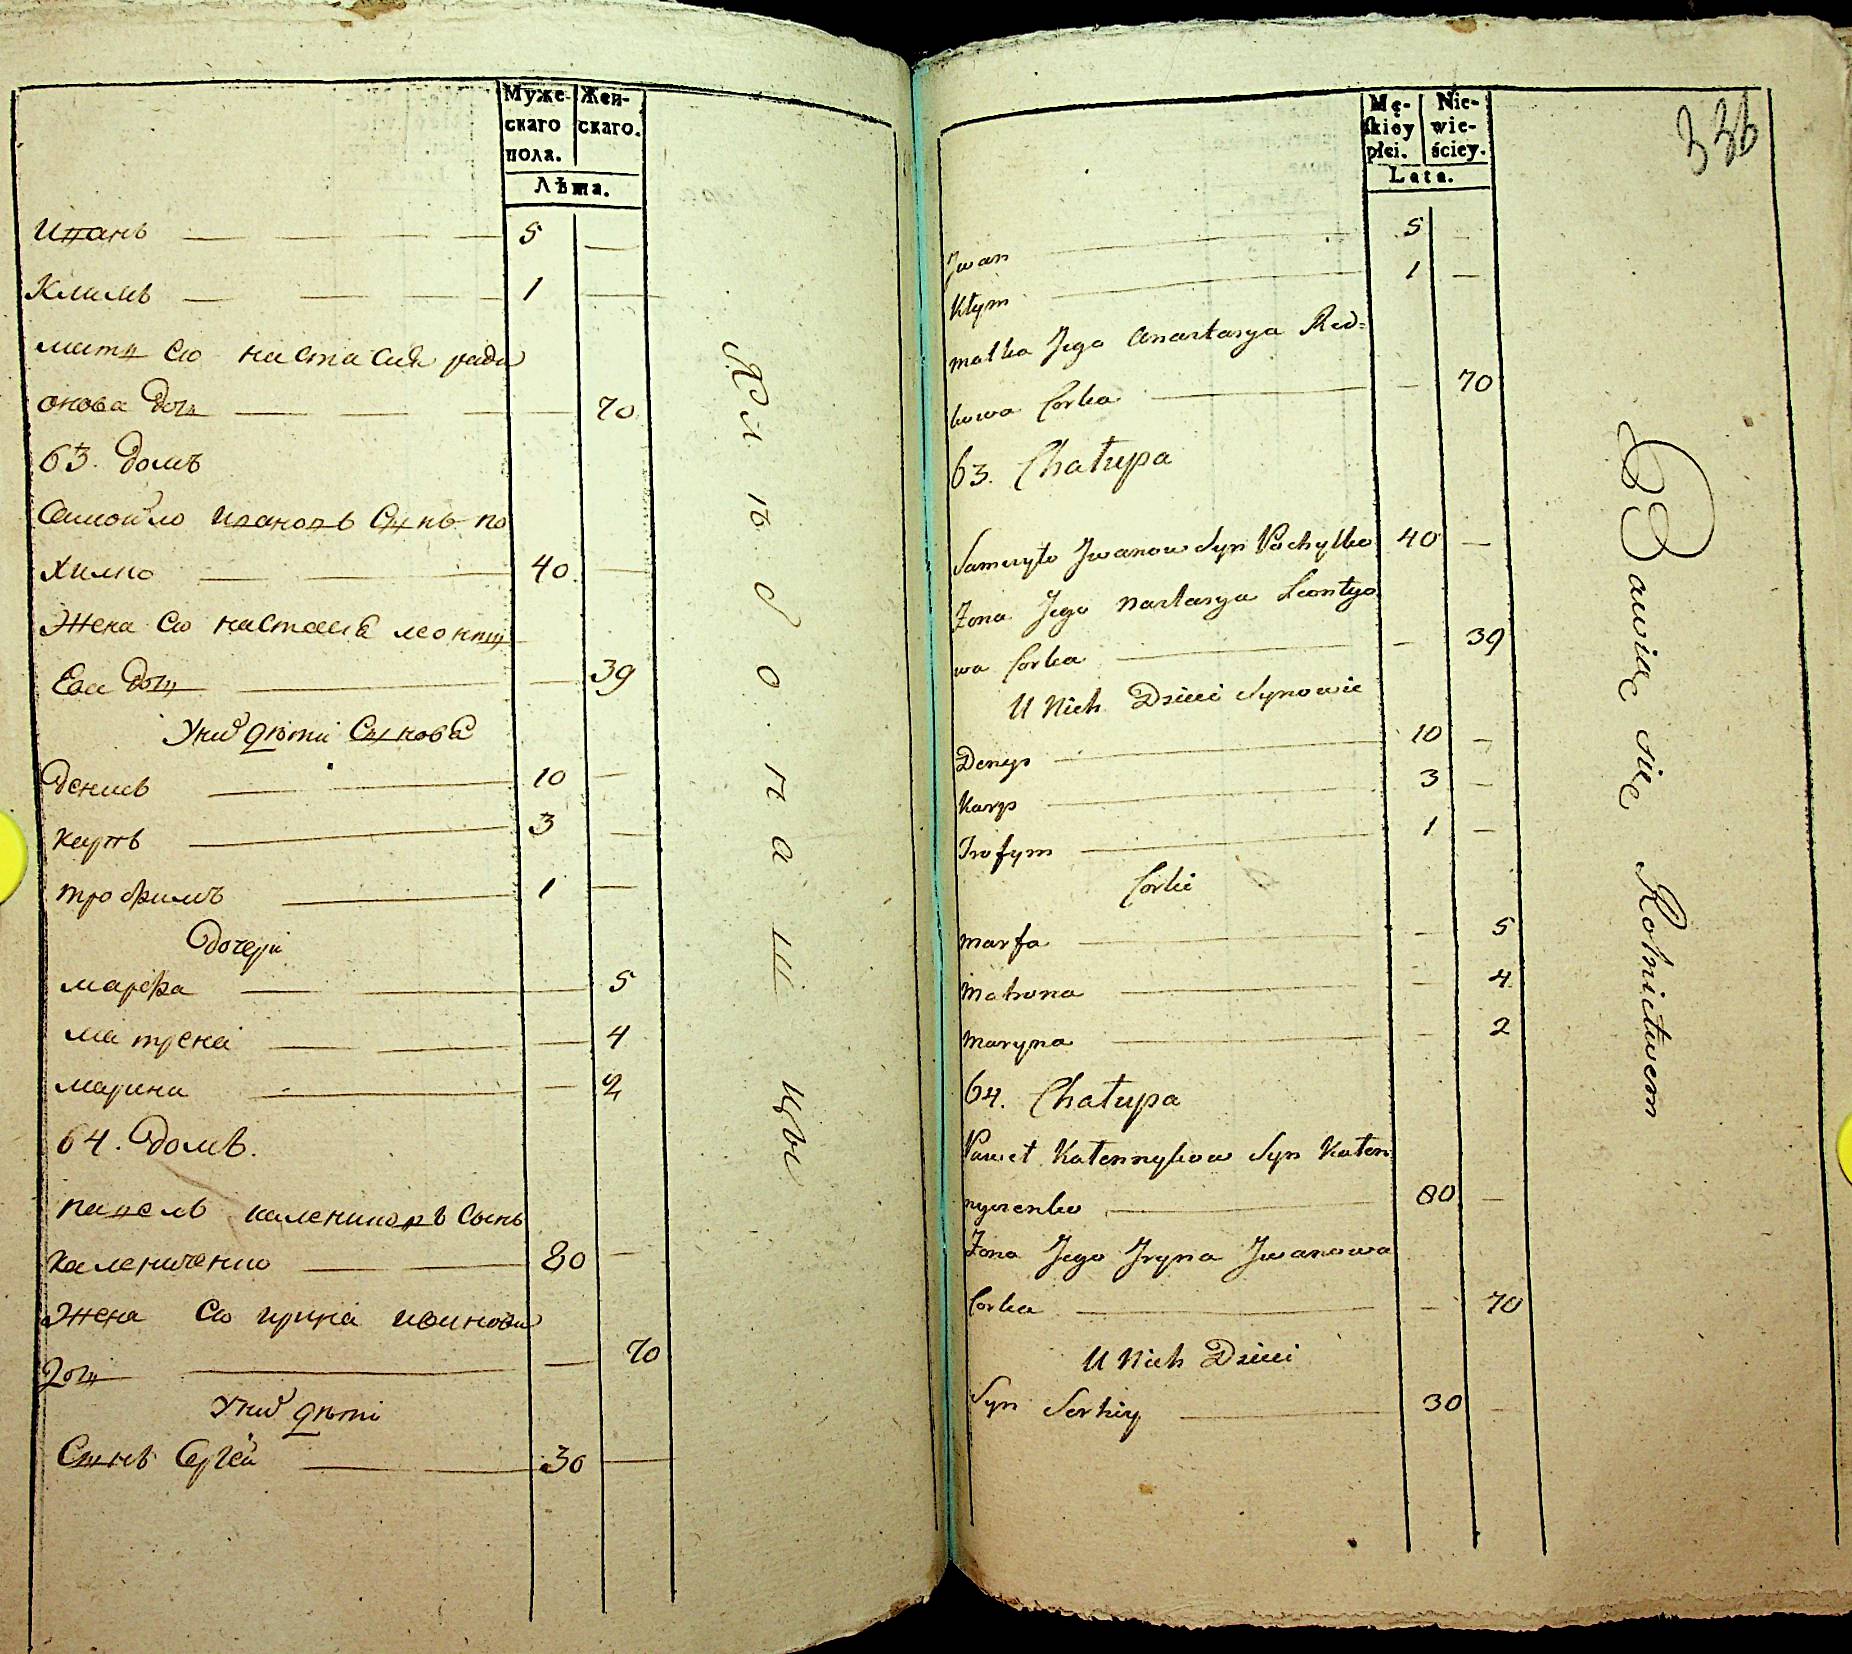 Муже-
скаго
пола.
Жен-
скаго.
Лѣта.
Иванъ 5 —
Климъ 1 —
мать Ею настасия ради
онова доч — 70
63. домъ
Самойло Ивановъ Сынъ по
хилко 40 —
Жена Ею настасиа леонти
Ева доч — 39
Уних дѣти Синовѣ
денисъ 10 —
карпъ 3 —
трофимъ 1 —
дочери
марфа — 5
матрена — 4
марина — 2
64. домъ.
павелъ калениковъ Сынъ
каленыченко 80 —
Жена Ею ирина иванова
доч — 70
Уних дѣти
Синъ Сергей 30 —
Хлѣбопашцы
Mę-
skiey
płci.
Nie-
wie-
ściey.
Lata.
336
Jwan 5 —
Kłym 1 —
matka Jego Anastasya Red-
kowa Corka — 70
63. Chałupa
Samuyło Jwanow Syn Pochylko 40 —
Zona Jego Nastasya Leontyo
wa Corka — 39
U Nich Dzieci Synowie
Denys 10 —
Karp 3 —
Trofym 1 —
Corki
Marfa — 5
Matrona — 4
Maryna — 2
64. Chałupa
Paweł Kałennykow Syn Kałen
nyczenko 80 —
Zona Jego Jryna Jwanowa
Corka — 70
U Nich Dzieci
Syn Serhiy 30 —
Bawią się Rolnictwem